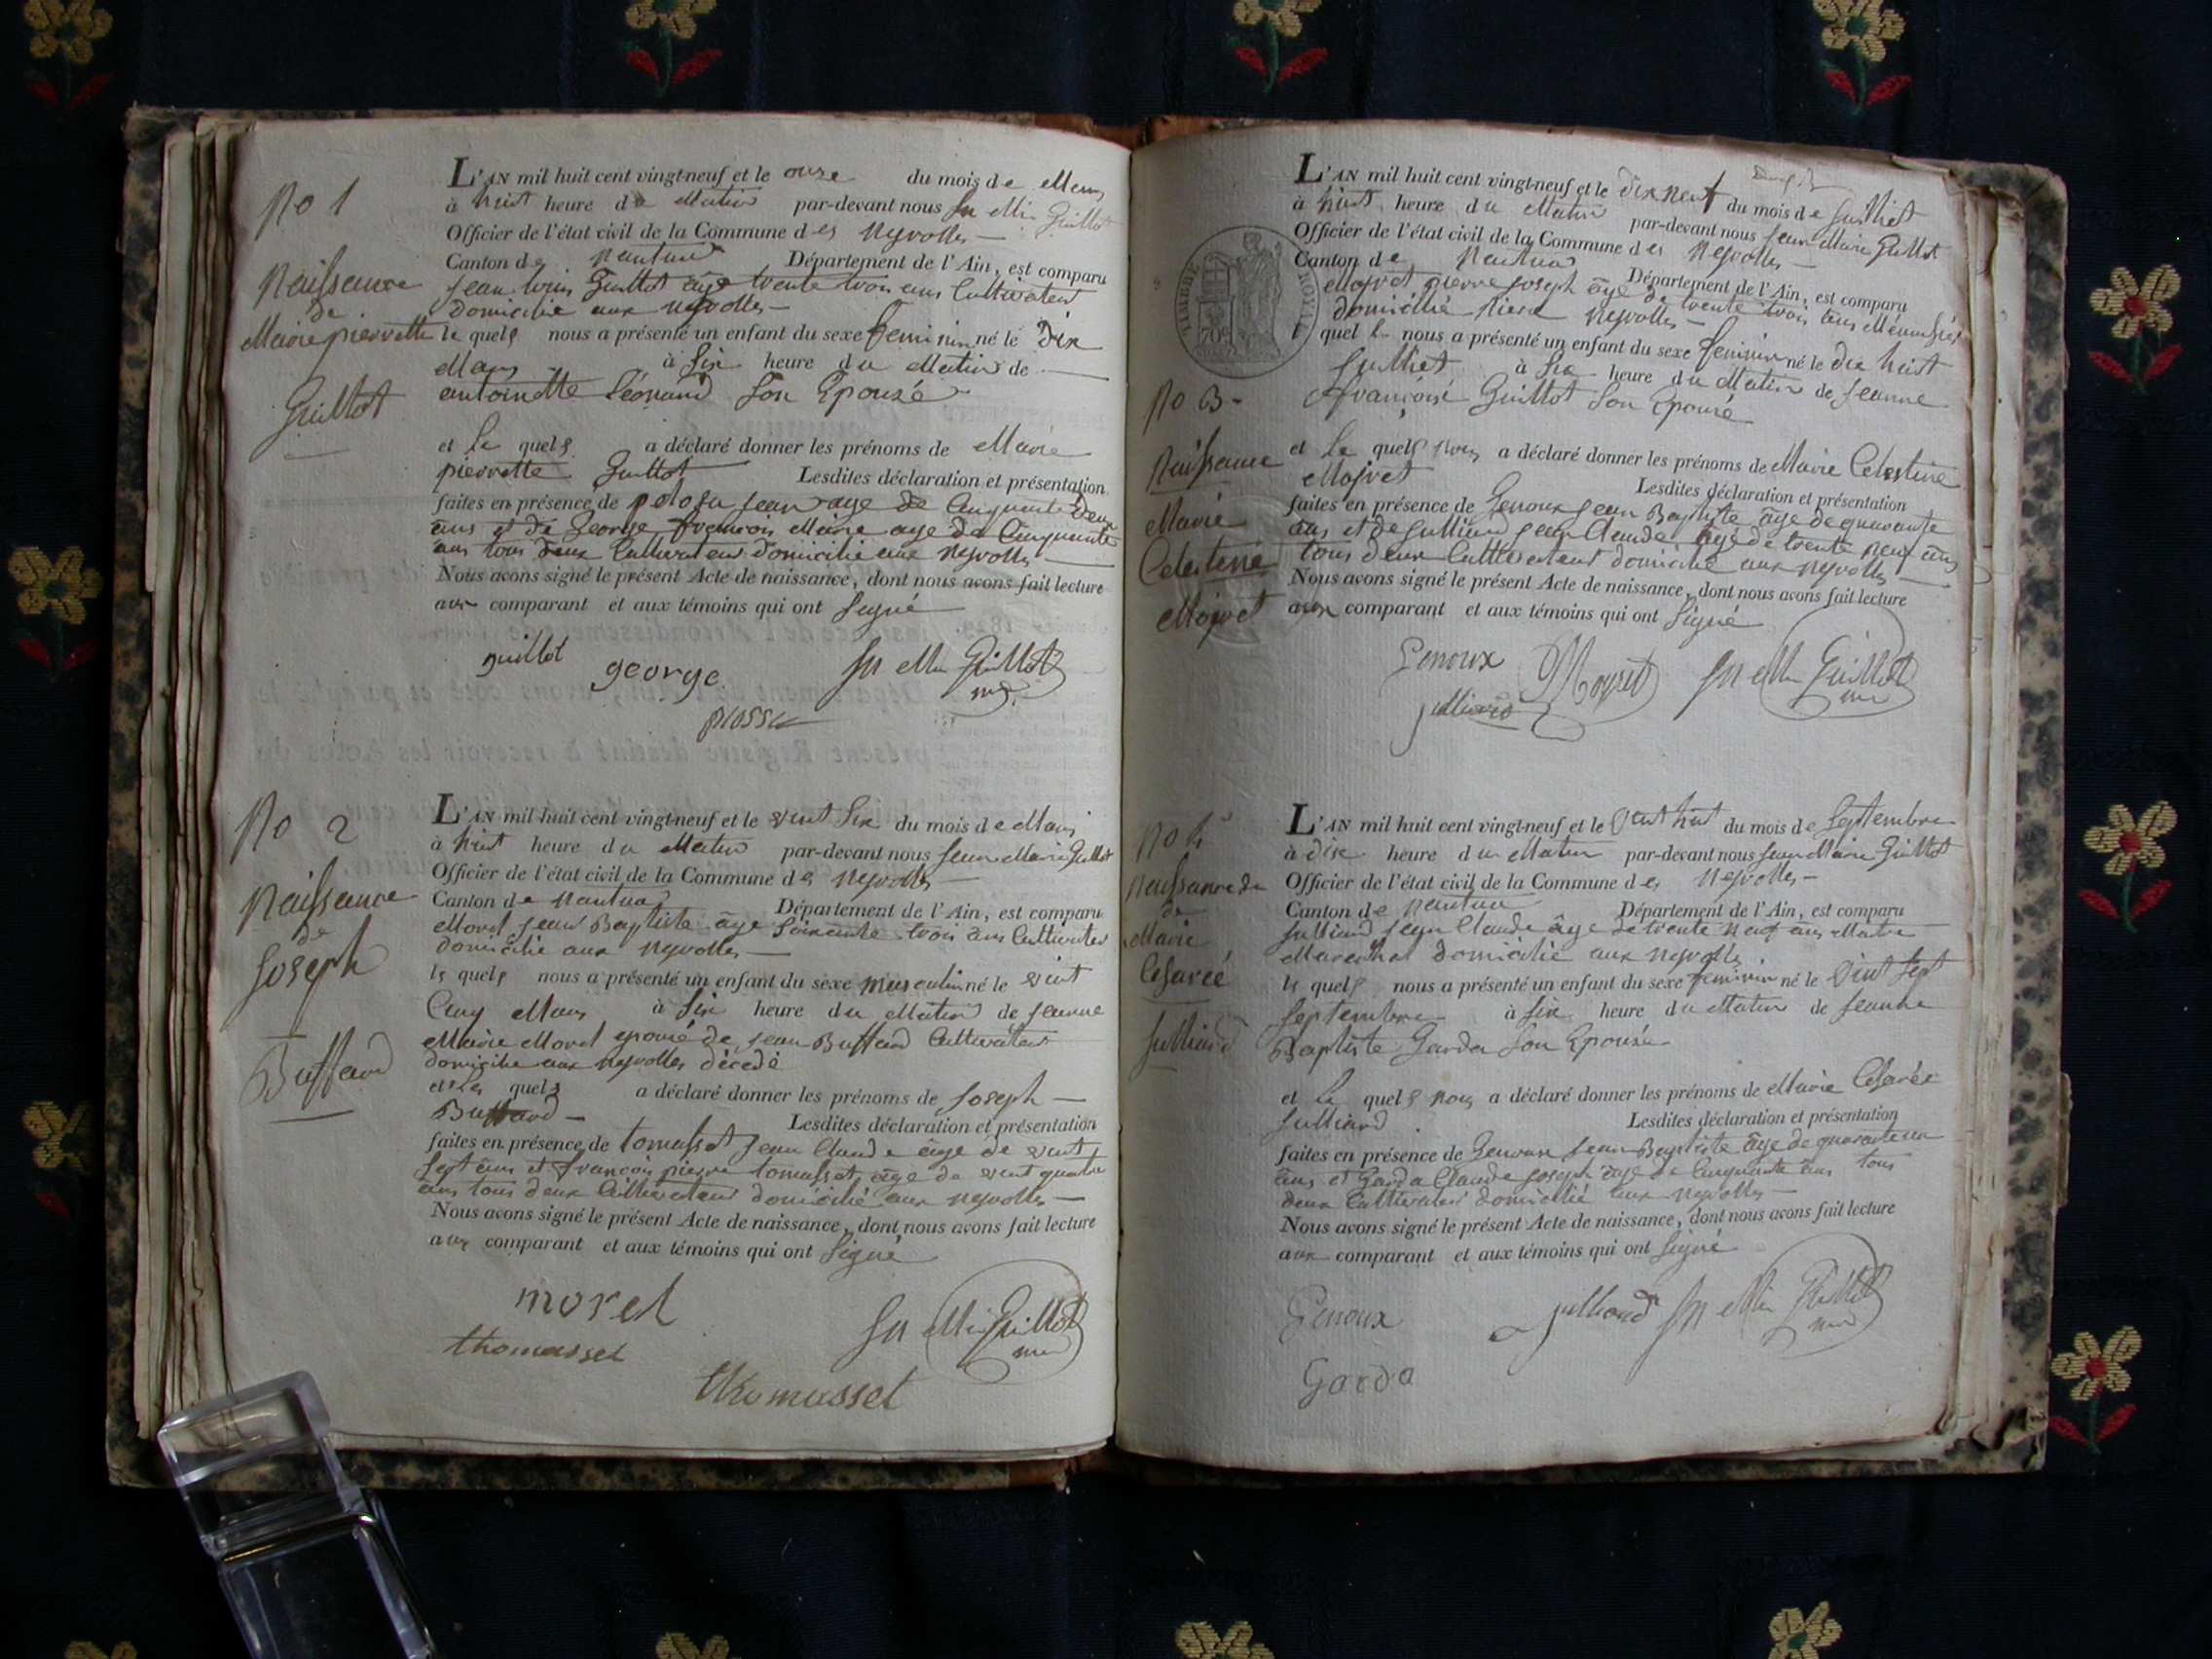 No 1
Naissance
de
Marie pierrette
Guillot
L'AN mil huit cent vingt-neuf et le onze du mois de Mars
à huit heure du Matin par-devant nous Jn Mie Guillot
Officier de l'état civil de la Commune des Neyrolles
Canton de Nantua Département de l'Ain, est comparu
Jean Louis Guillot âge trente trois ans Cultivateur
domicilié aux neyrolles
le quels nous a présenté un enfant du sexe feminin né le Dix
Mars à Six heure du Matin de
antoinette Léonard Son Epouse
et Le quels a déclaré donner les prénoms de Marie
pierrette Guillot Lesdites déclaration et présentation
faites en présence de jean age de Cinquante Deux
ans et de George francois Marie age de Cinquante
ans tous deux Cultivateur domicilié aux neyrolles
Nous avons signé le présent Acte de naissance, dont nous avons fait lecture
aux comparant et aux témoins qui ont Signé
guillot george Jn Mie Guillot
No 2
Naissance
de
Joseph
Buffard
L'AN mil huit cent vingt-neuf et le vint Six du mois de Mars
à huit heure du Matin par-devant nous Jean Marie Guillot
Officier de l'état civil de la Commune des neyrolles
Canton de Nantua Département de l'Ain, est comparu
Morel jean Baptiste âge Soixante trois ans Cultivateur
domicilié aux neyrolles
le quels nous a présenté un enfant du sexe masculin né le vint
Cinq Mars à Six heure du Matin de jeanne
Marie Morel epouse de jean Buffard Cultivateur
domicilie aux neyrolles décédé
et Les quels a déclaré donner les prénoms de Joseph
Buffard Lesdites déclaration et présentation
faites en présence de tomasset jean Claude âge de vint
Sept ans et françois pierre tomasset age de vint quatre
ans tous deux Cultivateur domicilié aux neyrolles
Nous avons signé le présent Acte de naissance, dont nous avons fait lecture
aux comparant et aux témoins qui ont Signé
morel Jn Mie Guillot
thomasset
thomasset
TIMBRE ROYAL
70c
No 3
Naissance
Marie
Celestine
Moyret
L'AN mil huit cent vingt-neuf et le dix neuf du mois de Juilliet
à huit heure du Matin par-devant nous jean Marie Guillot
Officier de l'état civil de la Commune des Neyrolles
Canton de Nantua Département de l'Ain, est comparu
Moyret pierre joseph âge de trente trois ans
domicilié neyrolles
quel nous a présenté un enfant du sexe feminin né le dix huit
Juilliet à Six heure du Matin de jeanne
françoise Guillot Son Epouse
et Le quels nous a déclaré donner les prénoms de Marie Celestine
Moyret Lesdites déclaration et présentation
faites en présence de Genoux jean Baptiste âge de quarante
ans et de julliard jean Claude age de trente neuf ans
tous deux Cultivateur domicilié aux neyrolles
Nous avons signé le présent Acte de naissance, dont nous avons fait lecture
aux comparant et aux témoins qui ont Signé
Genoux Moyret Jn Mie Guillot
julliard
No 4
Naissance de
de
Marie
Césarée
Julliard
L'AN mil huit cent vingt-neuf et le vint huit du mois de Septembre
à dix heure du Matin par-devant nous jean Marie Guillot
Officier de l'état civil de la Commune des Neyrolles
Canton de nantua Département de l'Ain, est comparu
Julliard jean Claude âge de trente neuf ans Maitre
Marechal domicilié aux neyrolles
le quels nous a présenté un enfant du sexe feminin né le vint Sept
Septembre à six heure du Matin de jeanne
Baptiste Garda Son Epouse
et Le quels nous a déclaré donner les prénoms de Marie Césarée
Julliard Lesdites déclaration et présentation
faites en présence de Genoux jean Baptiste âge de quarante un
ans et Garda Claude joseph age de Cinquante ans tous
deux Cultivateur domicilié aux neyrolles
Nous avons signé le présent Acte de naissance, dont nous avons fait lecture
aux comparant et aux témoins qui ont Signé
Genoux julliard Jn Mie Guillot
Garda